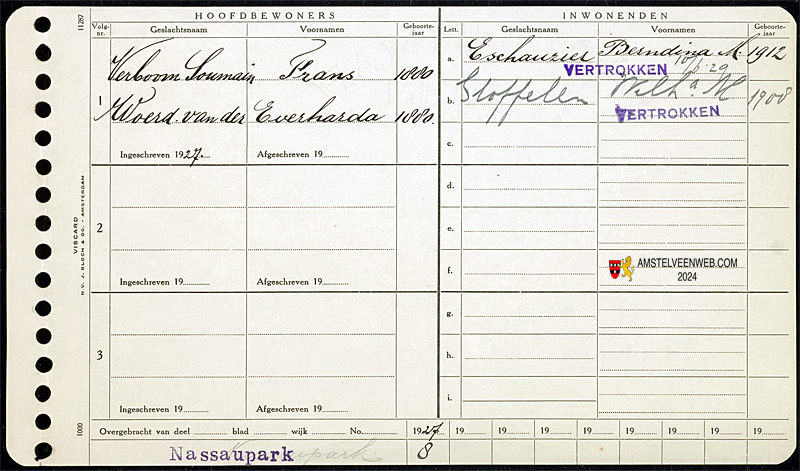 HOOFDBEWONERS
Volg-nr. Geslachtsnaam Voornamen Geboorte-jaar
1 Verboom Soumain Frans 1880
Woerd. van der Everharda 1880
Ingeschreven 1927. Afgeschreven 19
2
Ingeschreven 19 Afgeschreven 19
3
Ingeschreven 19 Afgeschreven 19
INWONENDEN
Lett. Geslachtsnaam Voornamen Geboorte-jaar
a. Eschauzier Berndina M. 1912
VERTROKKEN
b. Stoffelen Wilha M 1908
VERTROKKEN
c.
d.
e.
f.
AMSTELVEENWEB.COM
2024
g.
h.
i.
Overgebracht van deel blad wijk No. 1927 19 19 19 19 19 19 19 19
Nassaupark 8
11287
VISCARD
N.V. J. BLOCH & CO. - AMSTERDAM
1000